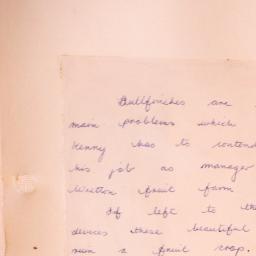 Bullfinches are
main problems which
Kenny has to contend
his job as manager
fruit farm
If left to the
devices these beautiful
ruin a fruit crop.